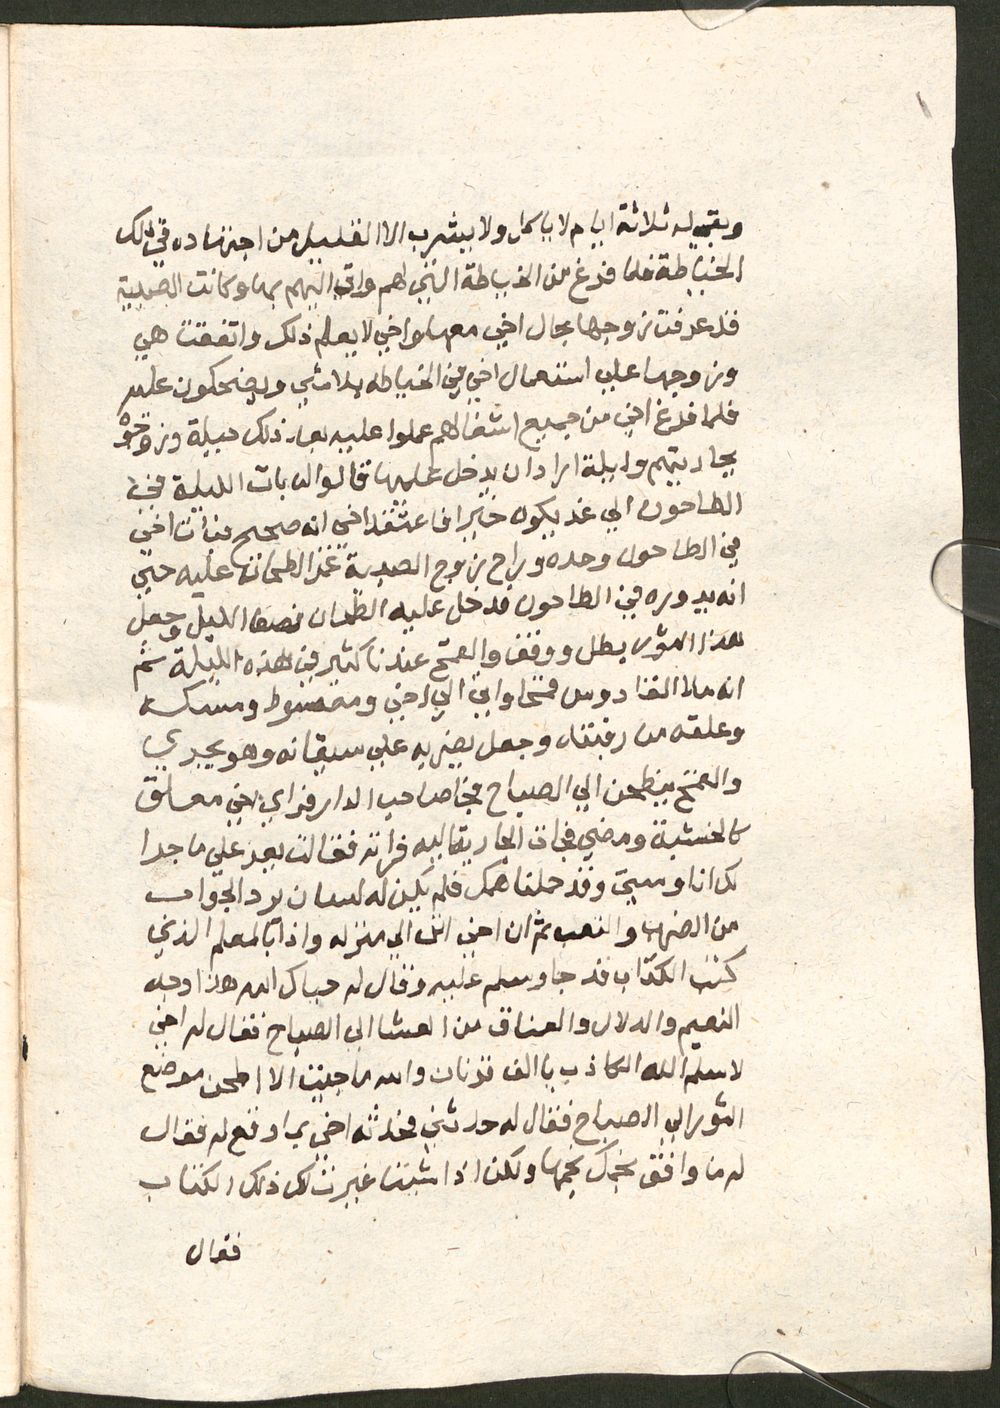 وبقي له ثلاثة ايام لا ياكل ولا يشرب الا القليل من اجتهاده في تلك
الخياطة فلما فرغ من الخياطة التي لهم واتي اليهم بها وكانت الصبية
قد عرفت زوجها بحال اخي معها واخي لا يعلم ذلك واتفقت هي
وزوجها علي استعمال اخي في الخياطه بلا شي ويضحكون عليه
فلما فرغ اخي من جميع اشغالهم عملوا عليه بعد ذلك حيلة وزوجوه
بجاريتهم وليلة اراد ان يدخل عليها قالوا له بات الليلة في
الطاحون الي غد يكون خيرا فاعتقد اخي انه صحيح فبات اخي
في الطاحون وحده وراح زوج الصبية غمز الطحان عليه حتي
انه يدوره في الطاحون فدخل عليه الطحان نصف الليل وجعل
هذا الثور بطل ووقف والقمح عندنا كثير في هذه الليلة ثم
انه ملا القادوس قمحا واتي الي اخي ومعه سوط ومسكه
وعلقه من رقبته وجعل يضربه علي سيقانه وهو يجري
والقمح ينطحن الي الصباح فجا صاحب الدار فراي اخي معلق
كالخشبة ومضي فجات الجارية اليه فراته فقالت يعز علي ما جرا
لك انا وستي وقد حملنا همك فلم يكن له لسان يرد الجواب
من الضرب والتعب ثم ان اخي اتى الي منزله واذا بالمعلم الذي
كتب الكتاب قد جا وسلم عليه وقال له حياك الله هذا وجه
النعيم والدلال والعناق من العشا الي الصباح فقال له اخي
لا سلم الله الكاذب يا الف قرنان والله ما جيت الا اطحن موضع
الثور الي الصباح فقال له حدثني فحدثه اخي بما وقع له فقال
له ما وافق نجمك نجمها ولكن اذا شيت غيرت لك ذلك الكتاب
فقال